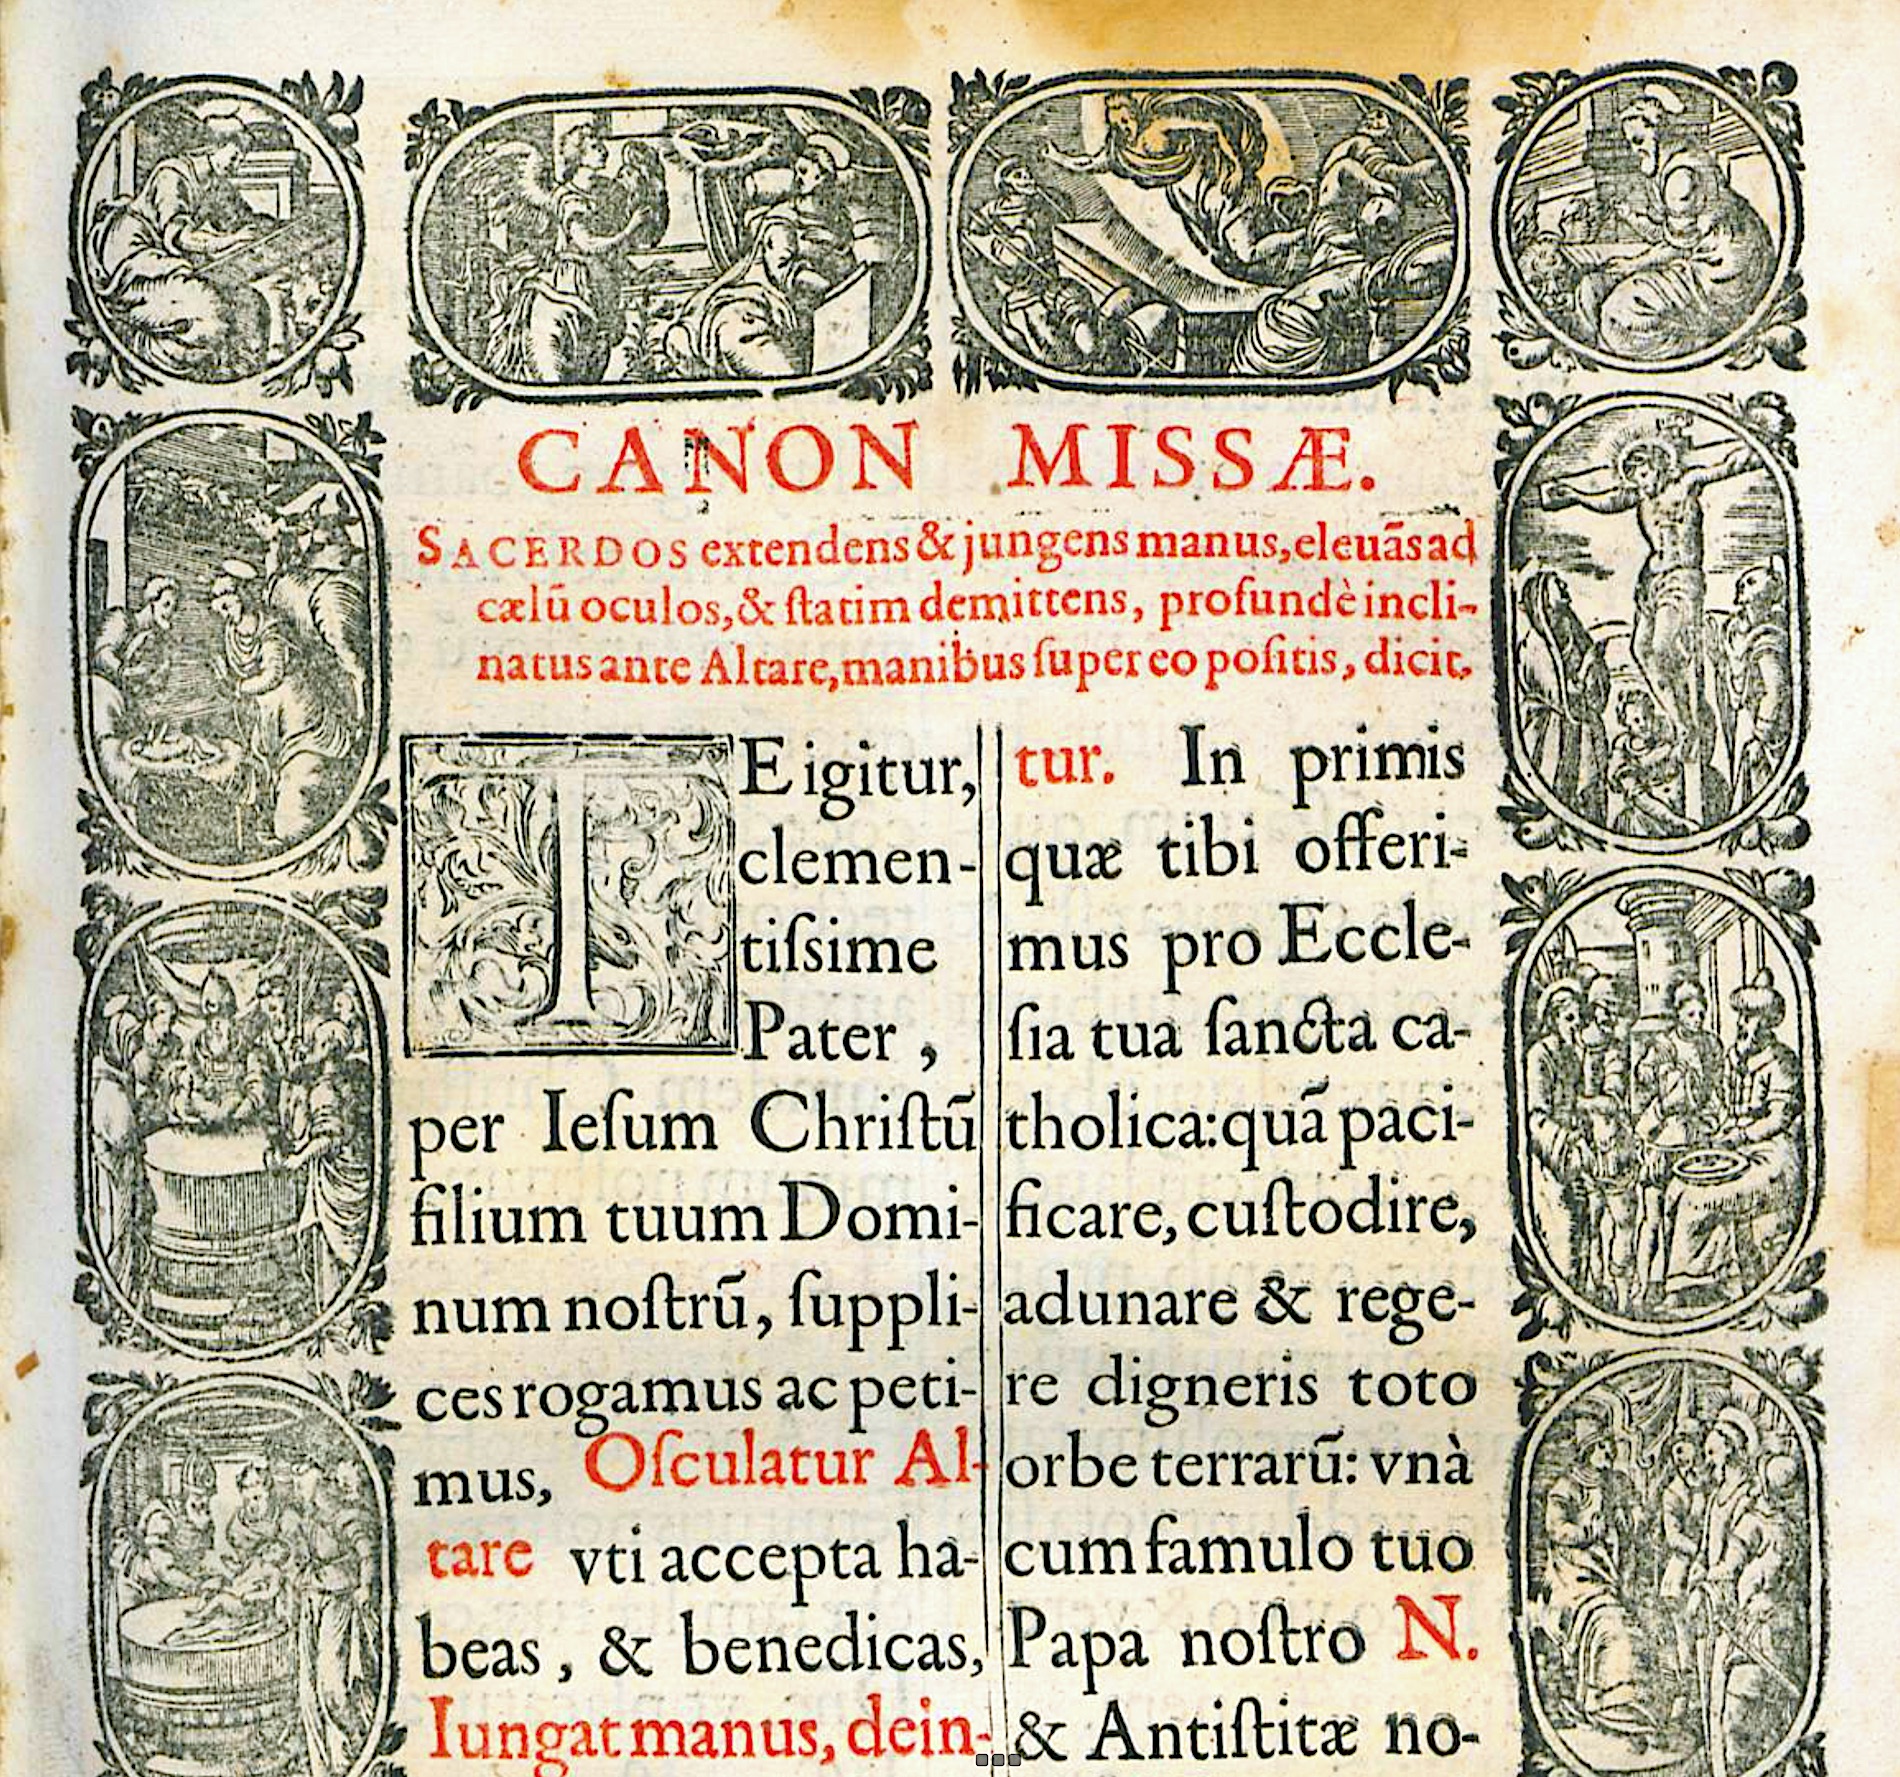 CANON MISSÆ.
SACERDOS extendens & jungens manus, eleuãs ad
cælũ oculos, & ſtatim demittens, profundè incli-
natus ante Altare, manibus ſuper eo poſitis, dicit,
TE igitur,
clemen-
tiſsime
Pater ,
per Ieſum Chriſtũ
filium tuum Domi-
num noſtrũ, ſuppli-
ces rogamus ac peti-
mus, Oſculatur Al-
tare vti accepta ha-
beas , & benedicas,
Iungat manus, dein-
tur. In primis
quæ tibi offeri-
mus pro Eccle-
ſia tua ſancta ca-
tholica: quã paci-
ficare, cuſtodire,
adunare & rege-
re digneris toto
orbe terrarũ: vnà
cum famulo tuo
Papa noſtro N.
& Antiſtitæ no-